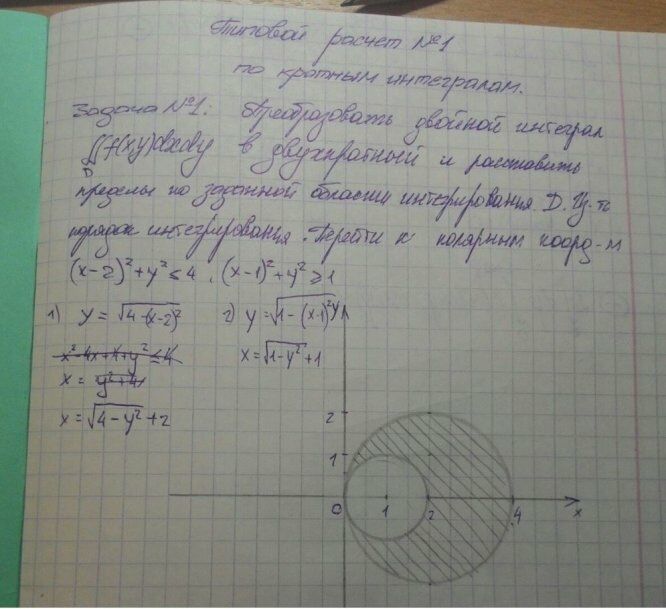 Типовой расчет №1
по кратным интегралам.
Задача №1: Преобразовать двойной интеграл
∬f(x,y)dxdy в двухкратный и расставить
D
пределы по заданной области интегрирования D.
порядок интегрирования. Перейти к полярным коорд-м
(x-2)²+y²≤4, (x-1)²+y²≥1
1) y=√(4-(x-2)²) 2) y=√(1-(x-1)²) y
x²-4x+4+y²≤4 x=√(1-y²)+1
x=
x=√(4-y²)+2
2
1
0 1 2 4 x